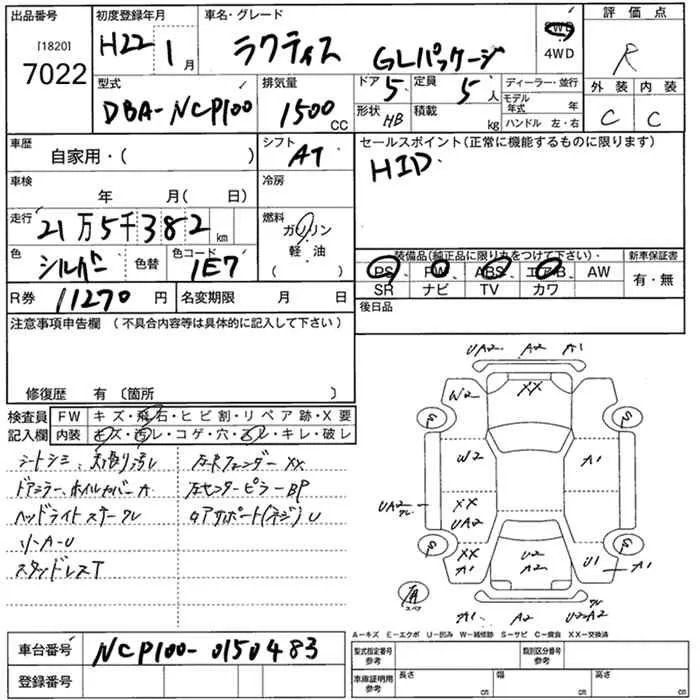 出品番号 初度登録年月 車名・グレード 評価点
[1820]
7022
H22 1月
ラクティス GLパッケージ
2WD
4WD
R
型式 排気量 ドア 5 定員 5人 ディーラー・並行 外装 内装
DBA-NCP100 1500 CC
形状 HB 積載 kg モデル年式 年
ハンドル 左・右
C C
車歴 自家用・( ) シフト AT
セールスポイント(正常に機能するものに限ります)
HID.
車検 年 月( 日) 冷房
走行 21万5千382 km 燃料 ガソリン
軽・油
( )
色 シルバー 色替 色コード 1E7
装備品(純正品に限り丸をつけて下さい)・ 新車保証書
PS・PW・ABS・エアB・AW
SR ナビ TV カワ
有・無
R券 11270 円 名変期限 月 日
後日品
注意事項申告欄 (不具合内容等は具体的に記入して下さい)
修復歴 有 〔箇所 〕
検査員記入欄 FW キズ・飛石・ヒビ割・リペア跡・X要
内装 キズ・汚レ・コゲ・穴・スレ・キレ・破レ
シートシミ、天張り汚レ
ドアミラー、ホイルカバーA
ヘッドライトステーワレ
リ-A-U
スタッドレスT
左Rフェンダー XX
左センターピラーBP
UA2 A2 A1
W2 XX
S S
W2 A1
UA2 ワレ XX
UA2
S XX
A1 U2
A2 U1 A1 S
有
スペア
A1 A2 U2A2 ワレ
A-キズ E-エクボ U-凹み W-補修跡 S-サビ C-腐食 XX-交換済
車台番号 NCP100-0150483
登録番号
型式指定番号 参考 類別区分番号 参考
車庫証明用 参考 長さ cm 幅 cm 高さ cm